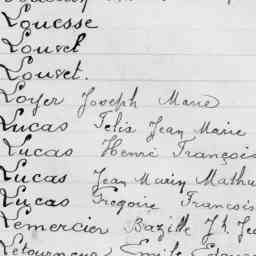 Louesse
Louvel
Louvet.
Loyer Joseph Marie
Lucas Felix Jean Marie
Lucas Henri François
Lucas Jean Marin Mathu
Lucas Gregoire Francois
Lemercier Bazille Jh. Je
Letourneur Emile